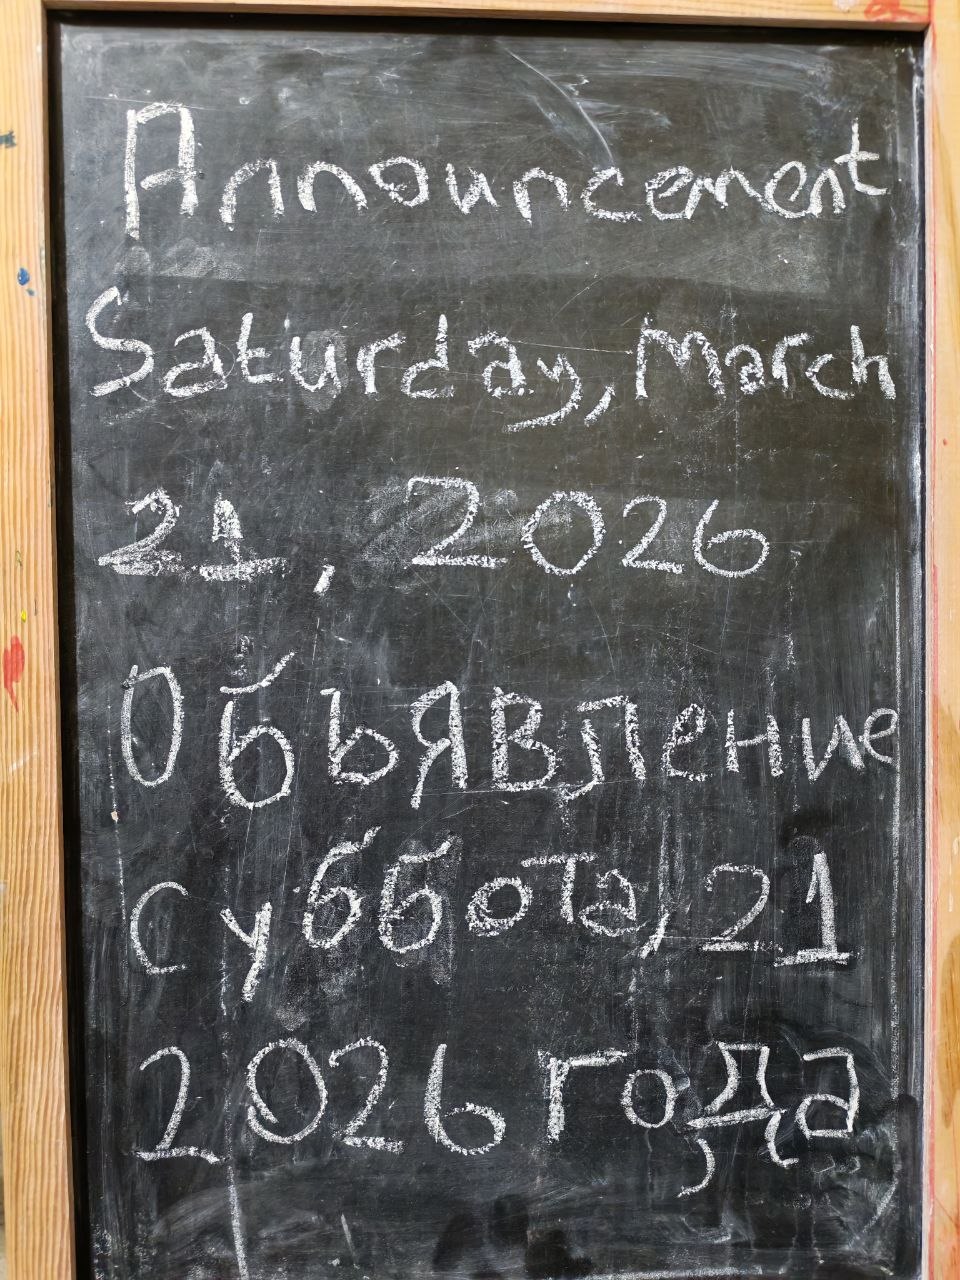 Announcement
Saturday, March
21, 2026
Объявление
Суббота, 21
2026 года